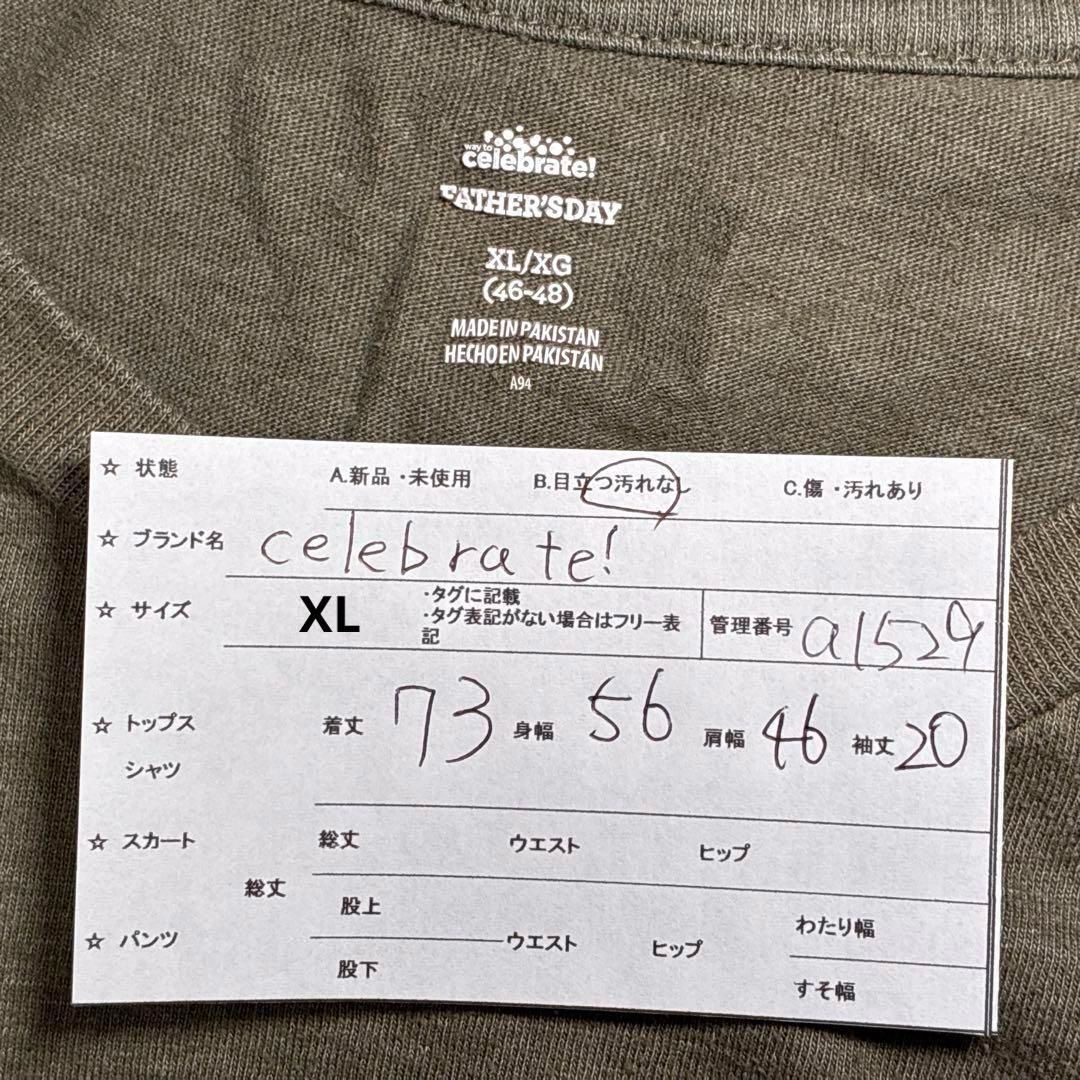 way to
celebrate!
FATHER'S DAY
XL/XG
(46-48)
MADE IN PAKISTAN
HECHO EN PAKISTÁN
A94
☆ 状態 A.新品・未使用 B.目立つ汚れなし C.傷・汚れあり
☆ ブランド名 celebrate!
☆ サイズ XL ・タグに記載
・タグ表記がない場合はフリー表
記
管理番号 a1529
☆ トップス 着丈 73 身幅 56 肩幅 46 袖丈 20
シャツ
☆ スカート 総丈 ウエスト ヒップ
総丈
股上 わたり幅
☆ パンツ ウエスト ヒップ
股下 すそ幅